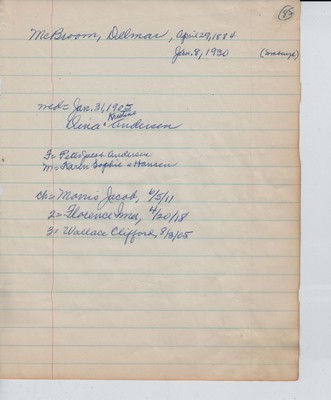 45
McBroom, Delmar, April 29, 1884
Jan. 8, 1930
md = Jan. 31, 1905
Kristine
Dina ^ Anderson
F = Peter Jacob Andersen
M = Karen Sophie Hansen
ch = Morris Jacob, 4/5/11
2 = Florence Ima, 4/20/18
3 = Wallace Clifford, 8/3/05